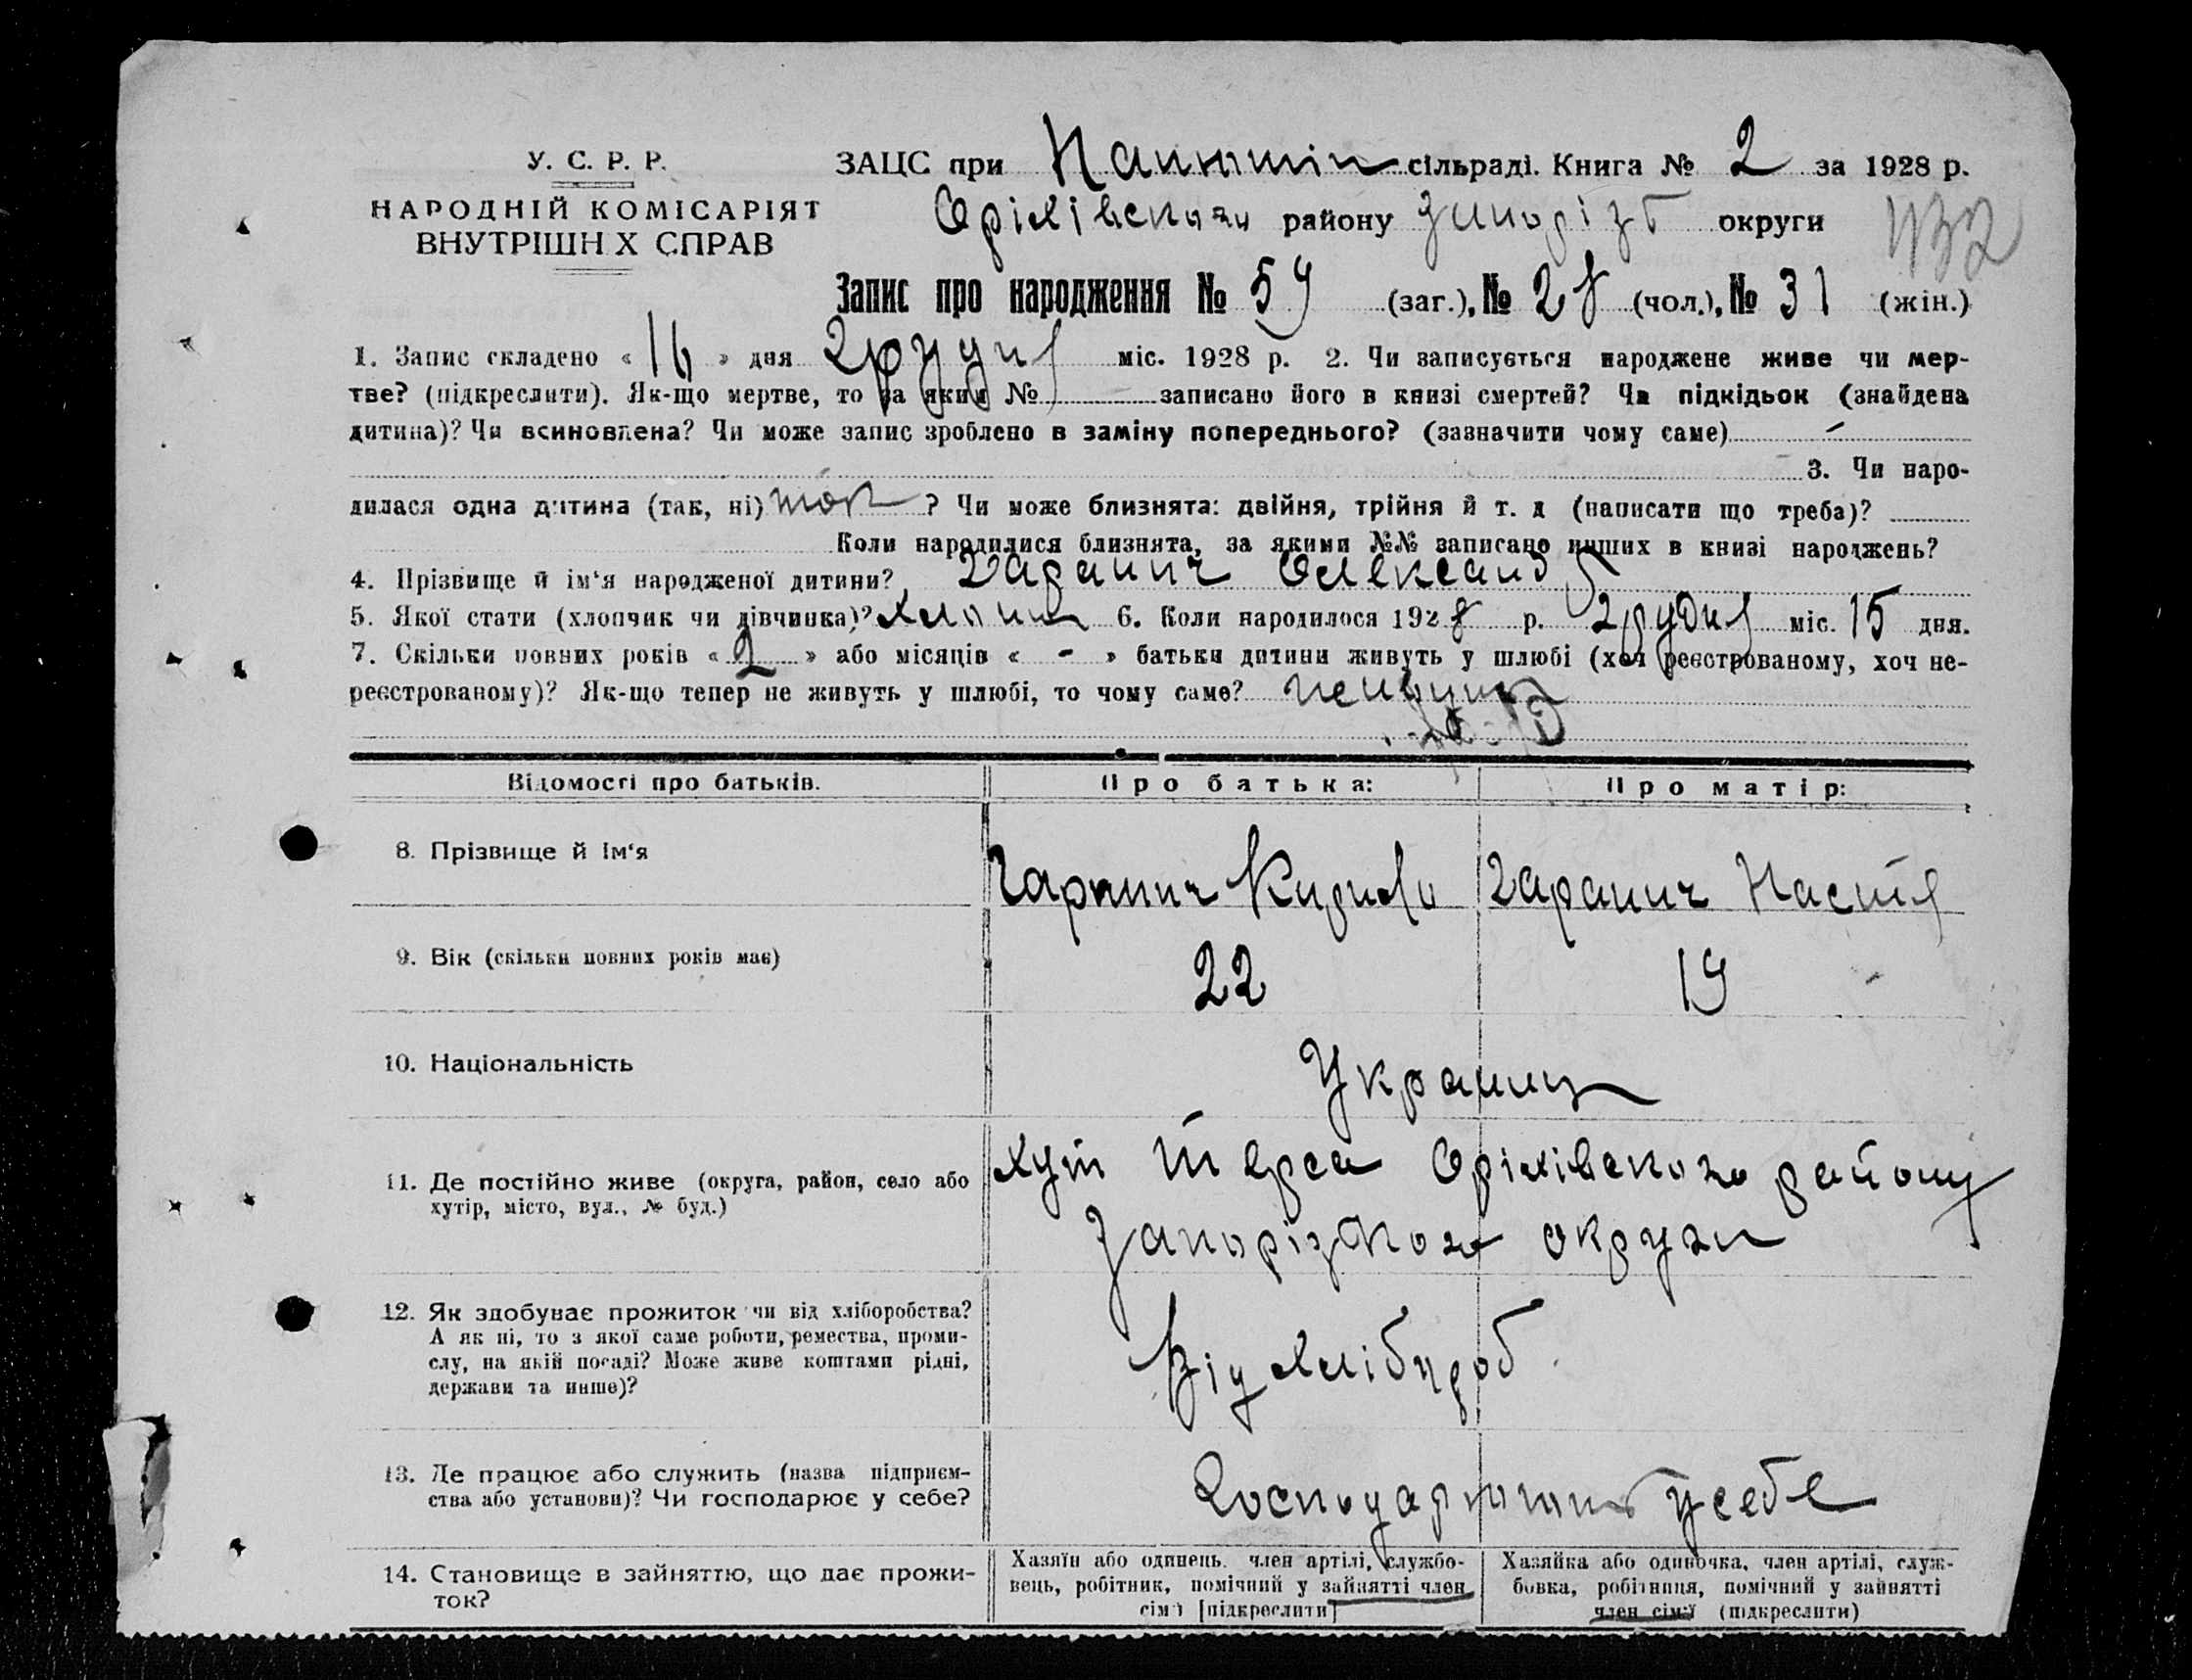 У. С. Р. Р.
НАРОДНІЙ КОМІСАРІЯТ
ВНУТРІШН Х СПРАВ
ЗАЦС при сільраді. Книга № 2 за 1928 р.
Оріхівського району Запорізь округи
432
Запис про народження № 59 (заг.), № 28 (чол.), № 31 (жін.)
1. Запис складено « 16 » дня грудня міс. 1928 р. 2. Чи записується народжене живе чи мер-
тве? (підкреслити). Як-що мертве, то за яким № записано його в книзі смертей? Чи підкідьок (знайдена
дитина)? Чи всиновлена? Чи може запис зроблено в заміну попереднього? (зазначити чому саме) -
3. Чи наро-
дилася одна дитина (так, ні) так ? Чи може близнята: двійня, трійня й т. д (написати що треба)?
Коли народилися близнята, за якими №№ записано инших в книзі народжень?
4. Прізвище й ім'я народженої дитини? Гаранич Олександр
5. Якої стати (хлопчик чи дівчинка)? хлопч 6. Коли народилося 1928 р. грудня міс. 15 дня.
7. Скільки повних років « 2 » або місяців « - » батьки дитини живуть у шлюбі (хоч реєстрованому, хоч не-
реєстрованому)? Як-що тепер не живуть у шлюбі, то чому саме?
Відомості про батьків. Про батька: Про матір:
8. Прізвище й ім'я Гаранич Кирило Гаранич Настя
9. Вік (скільки повних років має) 22 19
10. Національність Украинц
11. Де постійно живе (округа, район, село або
хутір, місто, вул., № буд.)
хут Терса Оріхівського району
Запорізького округи
12. Як здобуває прожиток чи від хліборобства?
А як ні, то з якої саме роботи, ремества, проми-
слу, на якій посаді? Може живе коштами рідні,
держави та инше)?
Від хлібороб
13. Де працює або служить (назва підприєм-
ства або установи)? Чи господарює у себе?
Господарюють у себе
14. Становище в зайняттю, що дає прожи-
ток?
Хазяїн або одинець, член артілі, службо-
вець, робітник, помічний у зайнятті член
сім'ї [підкреслити]
Хазяйка або одиночка, член артілі, служ-
бовка, робітниця, помічний у зайнятті
член сім'ї (підкреслити)